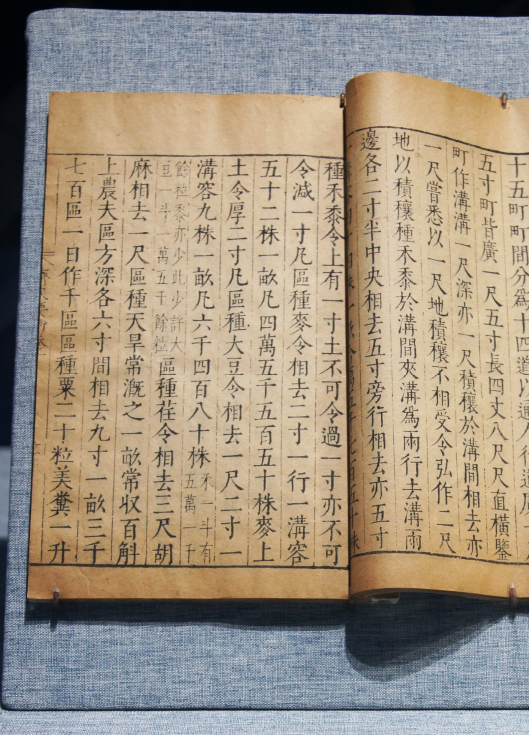 十五町町間分為十四道以通人行道廣
五寸町皆廣一尺五寸長四丈八尺尺直橫鑿
町作溝溝一尺深亦一尺積穰於溝間相去亦
一尺嘗悉以一尺地積穰不相受令弘作二尺
地以積穰種禾黍於溝間夾溝為兩行去溝兩
邊各二寸半中央相去五寸旁行相去亦五寸
種禾黍令上有一寸土不可令過一寸亦不可
令減一寸凡區種麥令相去二寸一行一溝容
五十二株一畝凡四萬五千五百五十株麥上
土令厚二寸凡區種大豆令相去一尺二寸一
溝容九株一畝凡六千四百八十株禾一斗有五萬一千
餘粒黍亦少此少許大豆一斗一萬五千餘粒區種荏令相去三尺胡
麻相去一尺區種天旱常溉之一畝常收百斛
上農夫區方深各六寸間相去九寸一畝三千
七百區一日作千區區種粟二十粒美糞一升